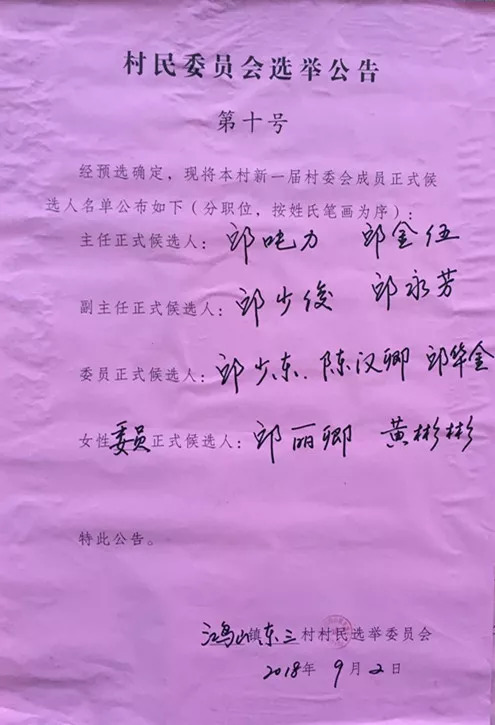 村民委员会选举公告
第十号
经预选确定，现将本村新一届村委会成员正式候
选人名单公布如下（分职位，按姓氏笔画为序）：
主任正式候选人：邱吨力 邱金伍
副主任正式候选人：邱少俊 邱永芳
委员正式候选人：邱少东、陈汉卿 邱华金
女性委员正式候选人：邱丽卿 黄彬彬
特此公告。
鸿山镇东三村村民选举委员会
2018年 9月2日